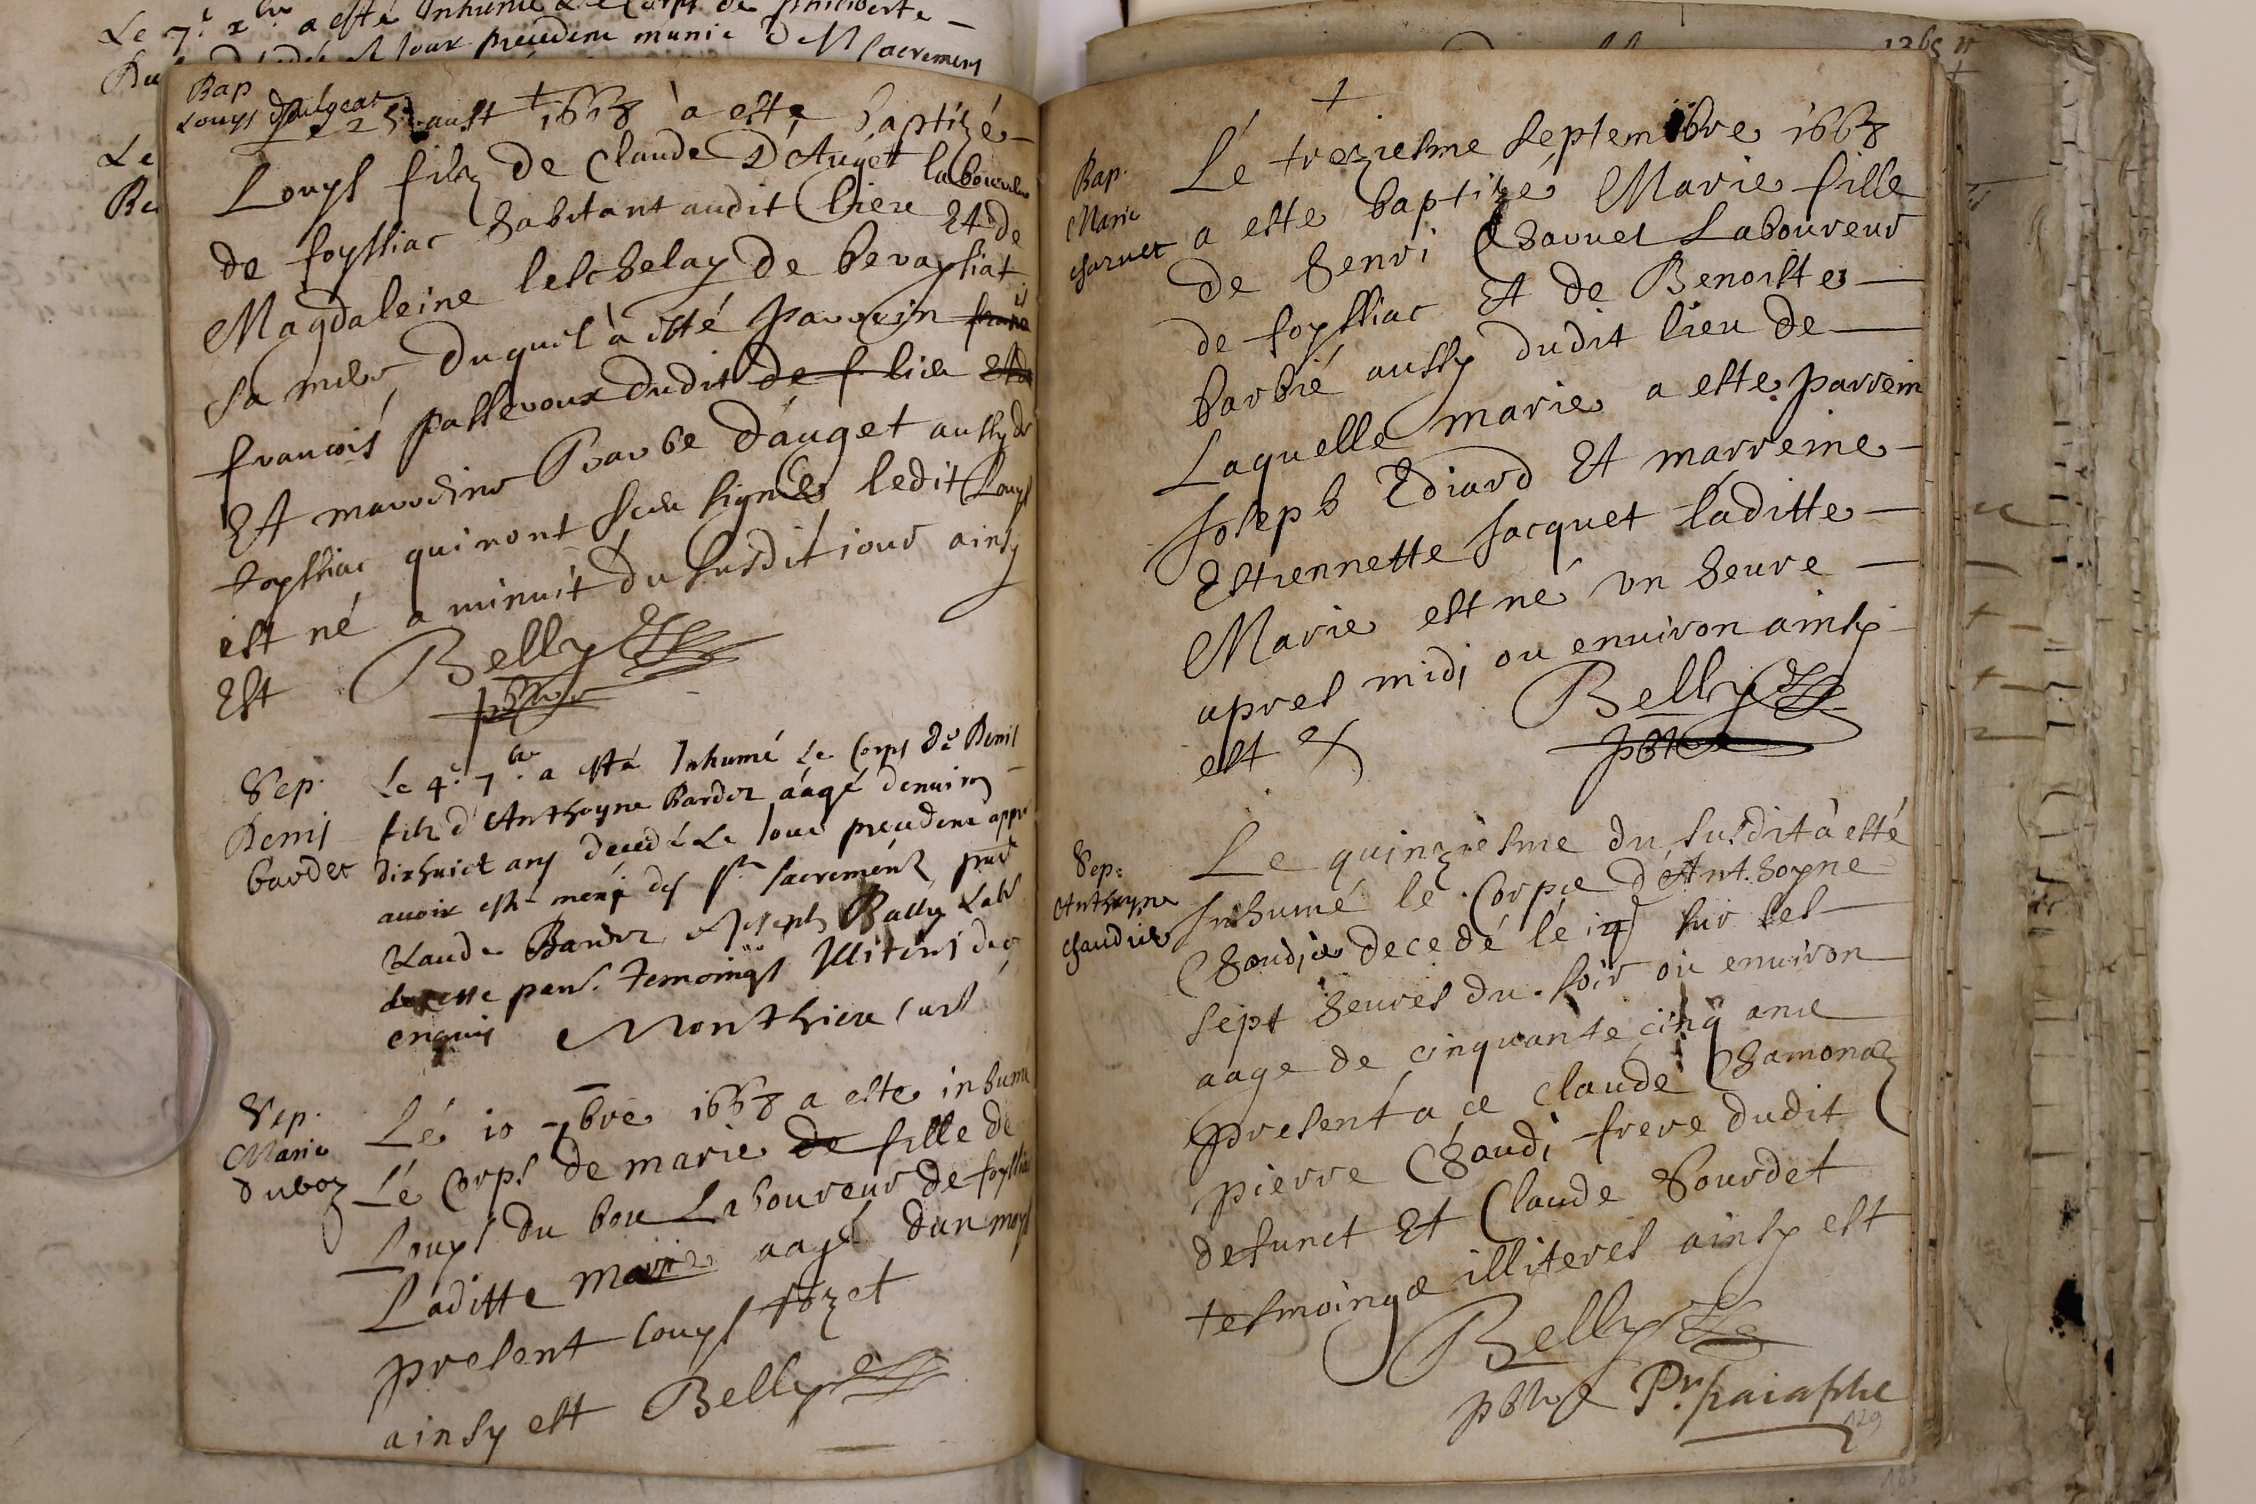 Le 7e xbre a esté Inhumé Le Corps de philiberte
jour precedent munie des sacremens
Bap
Louys d'augeat
Le 25 aust 1668 à esté baptizé
Louys filz de Claude D'Auget laboureur
de foyssiac habitant audit lieu Et de
Magdaleine leschelay de bevaysiat
sa mere duquel à esté parrein
francois passevoux dudit de f lieu
Et marreine Barbe d'auget aussy de
foyssiac qui nont sceu signer ledit Louys
est né a minuit du susdit jour ainsy
Est Belly
pbtre
Sep.
Denis
bardet
Le 4e 7bre a esté Inhumé Le Corps de Denis
filz d'Anthoyne Bardet aagé denviron
dixhuict ans decedé Le jour precedent appres
avoir esté des sts sacremens
Claude Bardet Joseph Bally
temoings Illiterés de ce
enquis Monthieu curé
Sep.
Marie
duboz
Lé 10 7bre 1668 a esté inhumé
Lé Corps de marie de fille de
Louys du bou Laboureur de foyssia
Laditte marie aagé d'un moys
present Louys fozet
ainsy est Belly
+
Bap.
Marie
charvet
Lé treziesme septembre 1668
a este baptizé Marie fille
de henri Charvet Laboureur
de foyssiac Et de Benoiste
barbié aussy dudit lieu de
Laquelle marie a este parrein
Joseph Ediard Et marreine
Estiennette Jacquet laditte
Marie est né un heure
apres midi ou environ ainsy
est Belly
pbtre
Sep:
Anthoyne
chaudie
Le quinziesme du susdit à esté
Inhumé le Corps d'Anthoyne
Chaudie decedé lé 14 sur les
sept heures du soir ou environ
aage de cinquante cinq ans
present a ce Claude Chamonaz
pierre Chaudi frere dudit
defunct Et Claude Bourdet
tesmoings illiteres ainsy est
Belly
pbtre Pr. paraphe
129